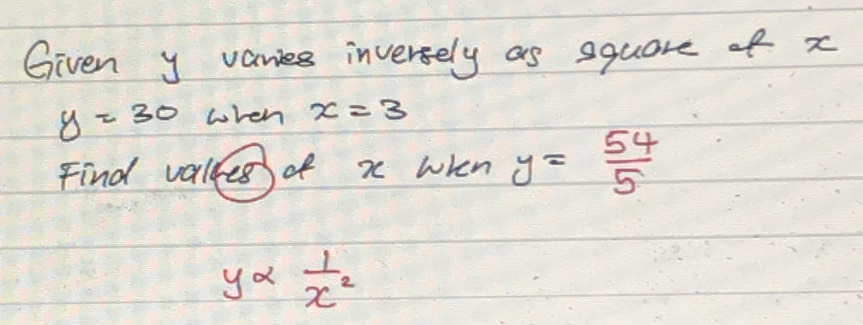 Given y varies inversely as square of x
y = 30 when x = 3
Find values of x when y = 54/5
y ∝ 1/x²